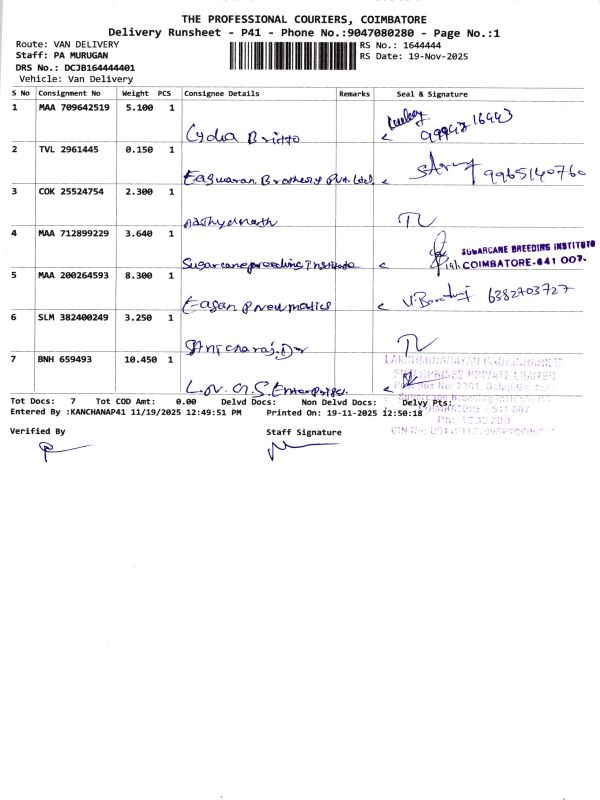 THE PROFESSIONAL COURIERS, COIMBATORE
Delivery Runsheet - P41 - Phone No.:9047080280 - Page No.:1
Route: VAN DELIVERY
RS No.: 1644444
Staff: PA MURUGAN
RS Date: 19-Nov-2025
DRS No.: DCJB164444401
Vehicle: Van Delivery
S No Consignment No Weight PCS Consignee Details Remarks Seal & Signature
1 MAA 709642519 5.100 1
Cydia Britto
2 TVL 2961445 0.150 1
Easwaran Brothers Pvt. Ltd, 9965140760
3 COK 25524754 2.300 1
4 MAA 712899229 3.640 1
SUGARCANE BREEDING INSTITUTE
Sugarcane Institute COIMBATORE-641 007.
5 MAA 200264593 8.300 1
Easan Pneumatics 6382703727
6 SLM 382400249 3.250 1
7 BNH 659493 10.450 1
PRIVATE LIMITED
Tot Docs: 7 Tot COD Amt: 0.00 Delvd Docs: Non Delvd Docs: Delvy Pts:
Entered By :KANCHANAP41 11/19/2025 12:49:51 PM Printed On: 19-11-2025 12:50:18
Verified By Staff Signature